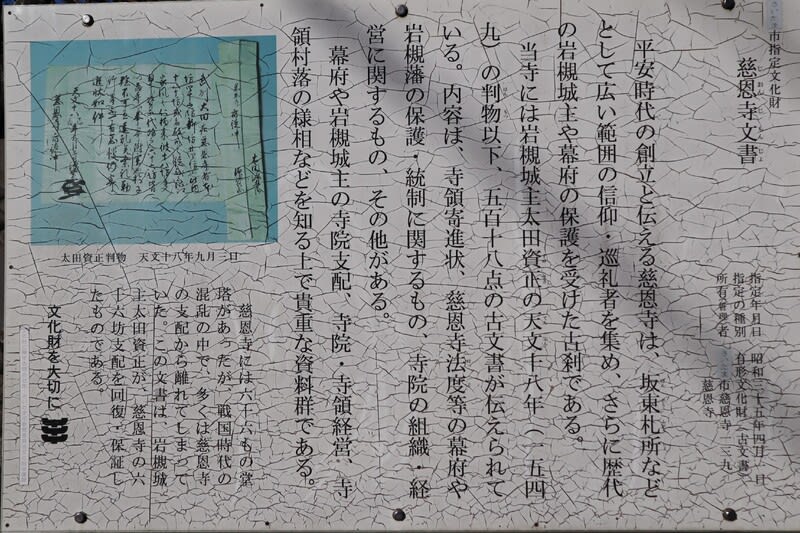 さいたま
市指定文化財
慈恩寺文書
じおんじもんじょ
指定年月日　昭和三十五年四月一日
指定の種別　有形文化財（古文書）
所有者
さいたま市慈恩寺一三九
慈恩寺
平安時代の創立と伝える慈恩寺は、坂東札所など
として広い範囲の信仰・巡礼者を集め、さらに歴代
の岩槻城主や幕府の保護を受けた古刹である。
当寺には岩槻城主太田資正の天文十八年（一五四
九）の判物以下、五百十八点の古文書が伝えられて
いる。内容は、寺領寄進状、慈恩寺法度等の幕府や
岩槻藩の保護・統制に関するもの、寺院の組織・経
営に関するもの、その他がある。
幕府や岩槻城主の寺院支配、寺院・寺領経営、寺
領村落の様相などを知る上で貴重な資料群である。
太田資正判物　天文十八年九月三日
慈恩寺には六十六もの堂
塔があったが、戦国時代の
混乱の中で、多くは慈恩寺
の支配から離れてしまって
いた。この文書は、岩槻城
主太田資正が、慈恩寺の六
十六坊支配を回復・保証し
たものである。
文化財を大切に